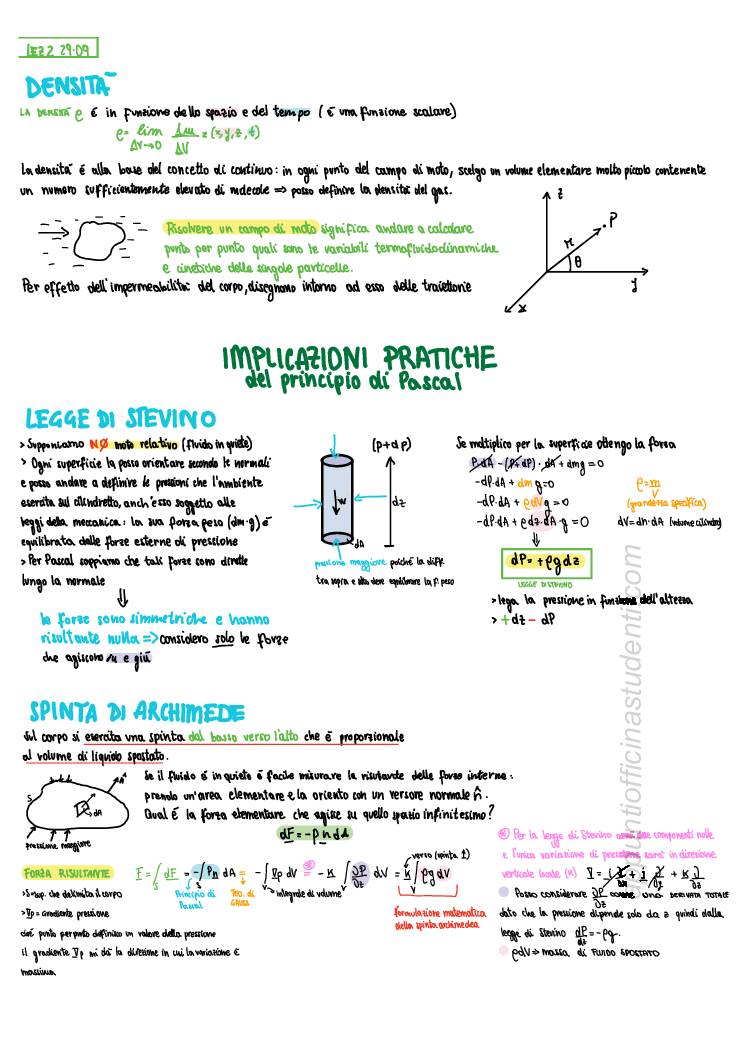 LEZ 2 29.09
DENSITÀ
LA DENSITÀ ρ è in funzione dello spazio e del tempo (è una funzione scalare)
ρ = lim Δm/ΔV = (x,y,z,t)
ΔV→0
La densità è alla base del concetto di continuo: in ogni punto del campo di moto, scelgo un volume elementare molto piccolo contenente
un numero sufficientemente elevato di molecole ⇒ posso definire la densità del gas.
Risolvere un campo di moto significa andare a calcolare
punto per punto quali sono le variabili termofluidodinamiche
e cinetiche delle singole particelle.
z
P
r
θ
y
x
Per effetto dell'impermeabilità del corpo, disegnano intorno ad esso delle traiettorie
IMPLICAZIONI PRATICHE
del principio di Pascal
LEGGE DI STEVINO
> Supponiamo NO moto relativo (fluido in quiete)
> Ogni superficie la posso orientare secondo le normali
e posso andare a definire le pressioni che l'ambiente
esercita sul cilindretto, anch'esso soggetto alle
leggi della meccanica: la sua forza peso (dm·g) è
equilibrata dalle forze esterne di pressione
> Per Pascal sappiamo che tali forze sono dirette
lungo la normale
⇓
le forze sono simmetriche e hanno
risultante nulla => considero solo le forze
che agiscono su e giù
(P+dP)
w
dz
dA
pressione maggiore poiché la diff.
tra sopra e sotto deve equilibrare la F. peso
Se moltiplico per la superficie ottengo la forza
P·dA - (P+dP)·dA + dmg = 0
-dP·dA + dm g = 0
-dP·dA + ρdV g = 0
-dP·dA + ρ dz·dA·g = 0
ρ = m/V
(grandezza specifica)
dV = dh·dA (volume cilindro)
⇓
dP = +ρg dz
LEGGE DI STEVINO
> lega la pressione in funzione dell'altezza
> + dz - dP
SPINTA DI ARCHIMEDE
Sul corpo si esercita una spinta dal basso verso l'alto che è proporzionale
al volume di liquido spostato.
S
n̂
dA
pressione maggiore
Se il fluido è in quiete è facile misurare la risultante delle forze interne:
prendo un'area elementare e la oriento con un versore normale n̂.
Qual è la forza elementare che agisce su quello spazio infinitesimo?
dF = -p n dA
FORZA RISULTANTE
F = ∫s dF = -∫ Pn dA = -∫ ∇p dV = -k ∫ ∂P/∂z dV = k ∫ ρg dV
Principio di Pascal
TEO. DI GAUSS
integrale di volume
verso (spinta ↑)
formulazione matematica
della spinta archimedea
> S = sup. che delimita il corpo
> ∇p = gradiente pressione
cioè punto per punto definisco un valore della pressione
il gradiente ∇p mi dà la direzione in cui la variazione è
massima
Per la legge di Stevino avrò due componenti nulle
e l'unica variazione di pressione sarà in direzione
verticale locale (k) ∇ = i ∂/∂x + j ∂/∂y + k ∂/∂z
Posso considerare ∂P/∂z come una DERIVATA TOTALE
dato che la pressione dipende solo da z quindi dalla
legge di Stevino dP/dz = -ρg.
ρdV ⇒ massa di FLUIDO SPOSTATO
appuntiofficinastudenti.com